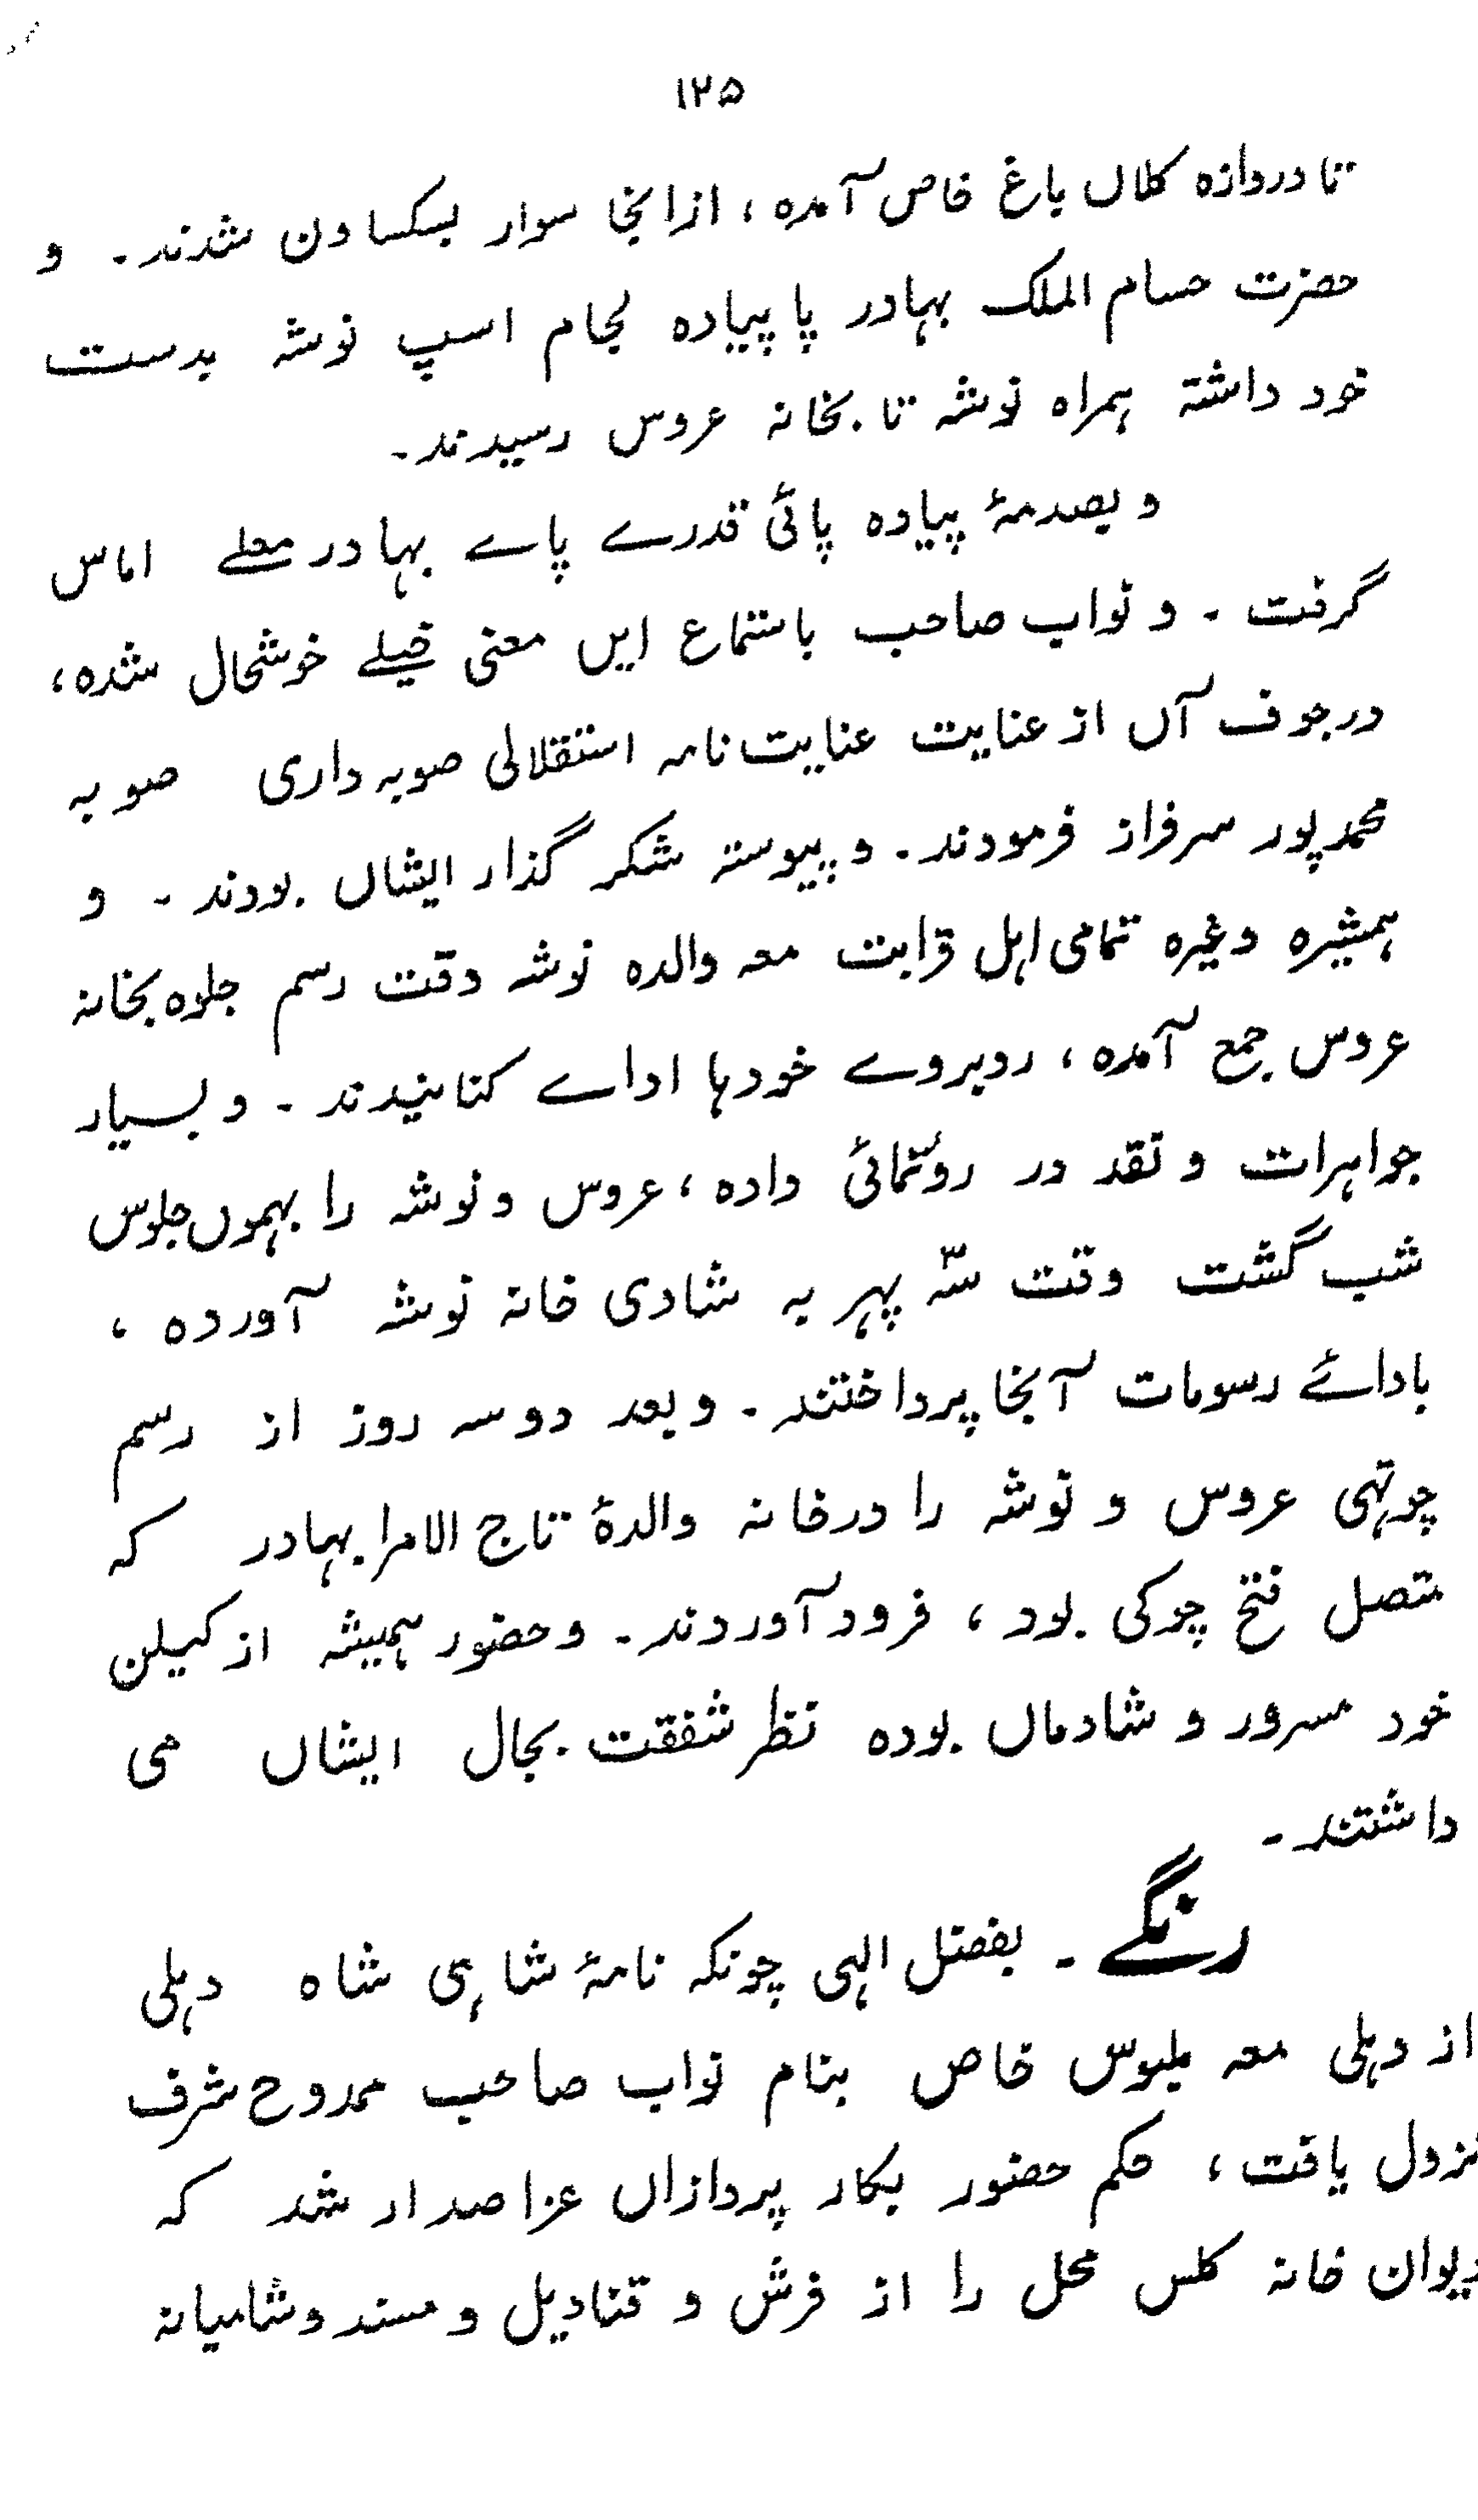 ۱۲۵
تا دروازه کلاں باغ خاص آمده، ازانجا سوار بسکساون شدند۔ و
حضرت حسام الملک بہادر پا پیاده لجام اسپ نوشہ بدست
خود داشتہ ہمراه نوشہ تا بخانہ عروس رسیدند۔
و بصدمۂ پیاده پائی قدرے پاے بہادر معلے اماس
گرفت۔ و نواب صاحب باستماع ایں معنی خیلے خوشحال شده،
در جوف آں از عنایت عنایت نامہ استقلالی صوبہ داری صوبہ
محمد پور سرفراز فرمودند۔ و پیوستہ شکر گذار ایشاں بودند۔ و
ہمشیره وغیره تمامی اہل قرابت معہ والده نوشہ وقت رسم جلوه بخانہ
عروس جمع آمده، روبروے خودہا اداے کنانیدند۔ و بسیار
جواہرات و نقد در رونمائی داده، عروس و نوشہ را بہموں جلوس
شب گشت وقت سہّ پہر بہ شادی خانہ نوشہ آورده،
باداۓ رسومات آنجا پرداختند۔ و بعد دو سہ روز از رسم
چوتہی عروس و نوشہ را در خانہ والدۂ تاج الامرا بہادر کہ
متصل فتح چوکی بود، فرود آوردند۔ و حضور ہمیشہ از کیلن
خود مسرور و شادماں بوده نظر شفقت بحال ایشاں می
داشتند۔
رنگے۔ بفضل الہی چونکہ نامۂ شاہی شاه دہلی
از دہلی معہ ملبوس خاص بنام نواب صاحب ممدوح شرف
نزول یافت، حکم حضور بکار پردازاں عزا صدار شد کہ
دیوان خانہ کلس محل را از فرش و قنادیل و مسند و شامیانہ